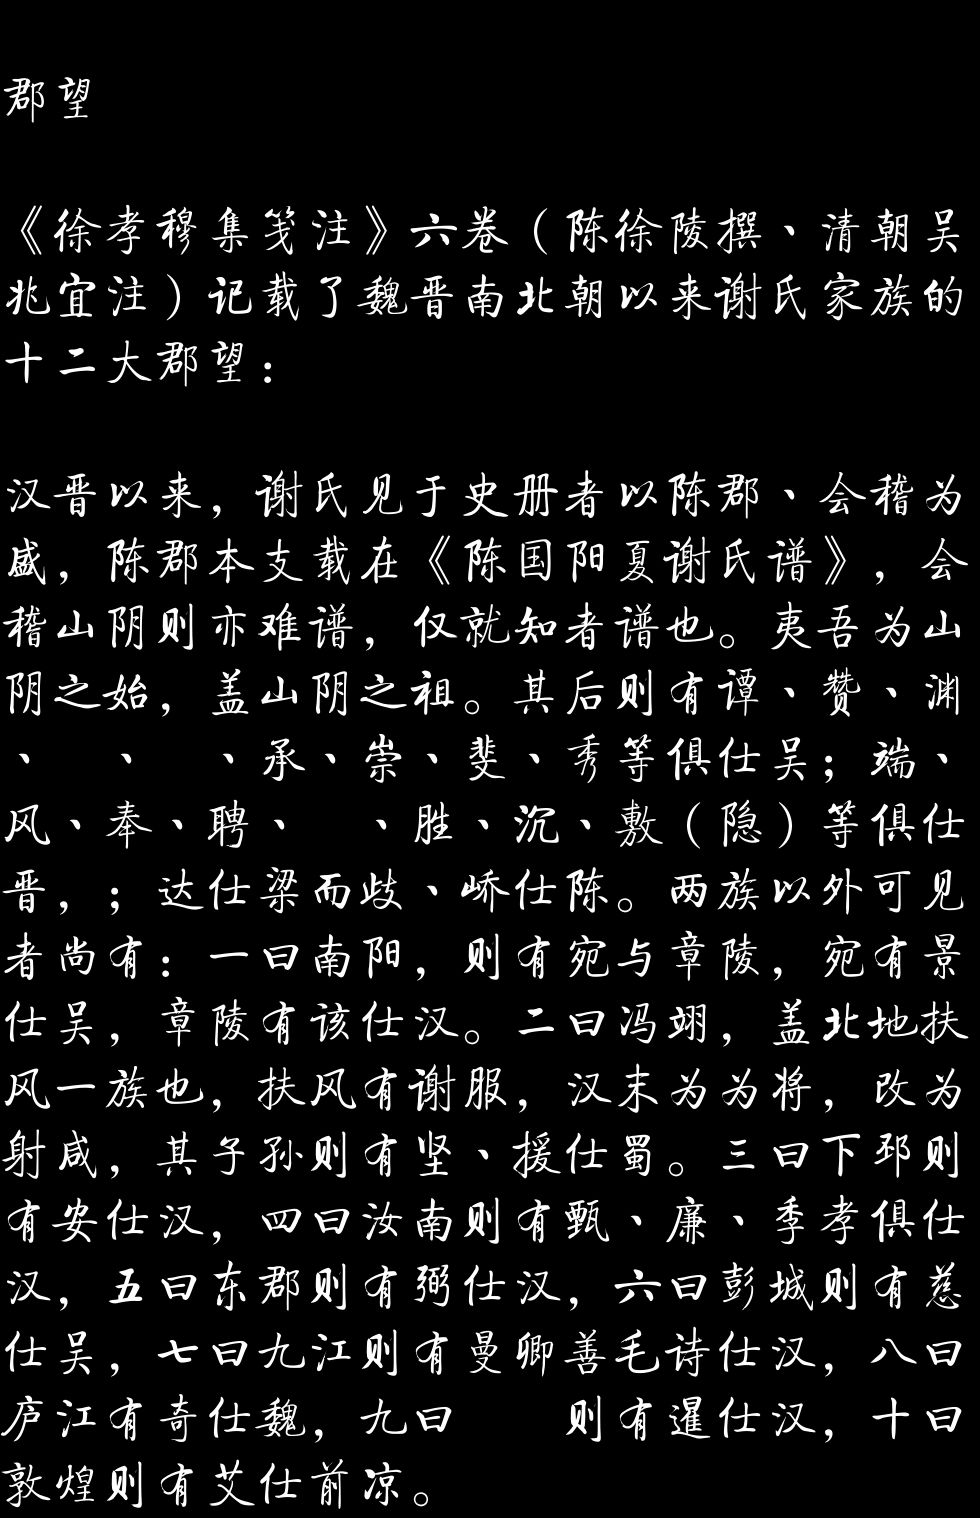 郡望
《徐孝穆集笺注》六卷（陈徐陵撰、清朝吴
兆宜注）记载了魏晋南北朝以来谢氏家族的
十二大郡望：
汉晋以来，谢氏见于史册者以陈郡、会稽为
盛，陈郡本支载在《陈国阳夏谢氏谱》，会
稽山阴则亦难谱，仅就知者谱也。夷吾为山
阴之始，盖山阴之祖。其后则有谭、赞、渊
、　、　、承、崇、斐、秀等俱仕吴；端、
风、奉、聘、　、胜、沉、敷（隐）等俱仕
晋，；达仕梁而歧、峤仕陈。两族以外可见
者尚有：一曰南阳，则有宛与章陵，宛有景
仕吴，章陵有该仕汉。二曰冯翊，盖北地扶
风一族也，扶风有谢服，汉末为为将，改为
射咸，其子孙则有坚、援仕蜀。三曰下邳则
有安仕汉，四曰汝南则有甄、廉、季孝俱仕
汉，五曰东郡则有弼仕汉，六曰彭城则有慈
仕吴，七曰九江则有曼卿善毛诗仕汉，八曰
庐江有奇仕魏，九曰　　则有暹仕汉，十曰
敦煌则有艾仕前凉。